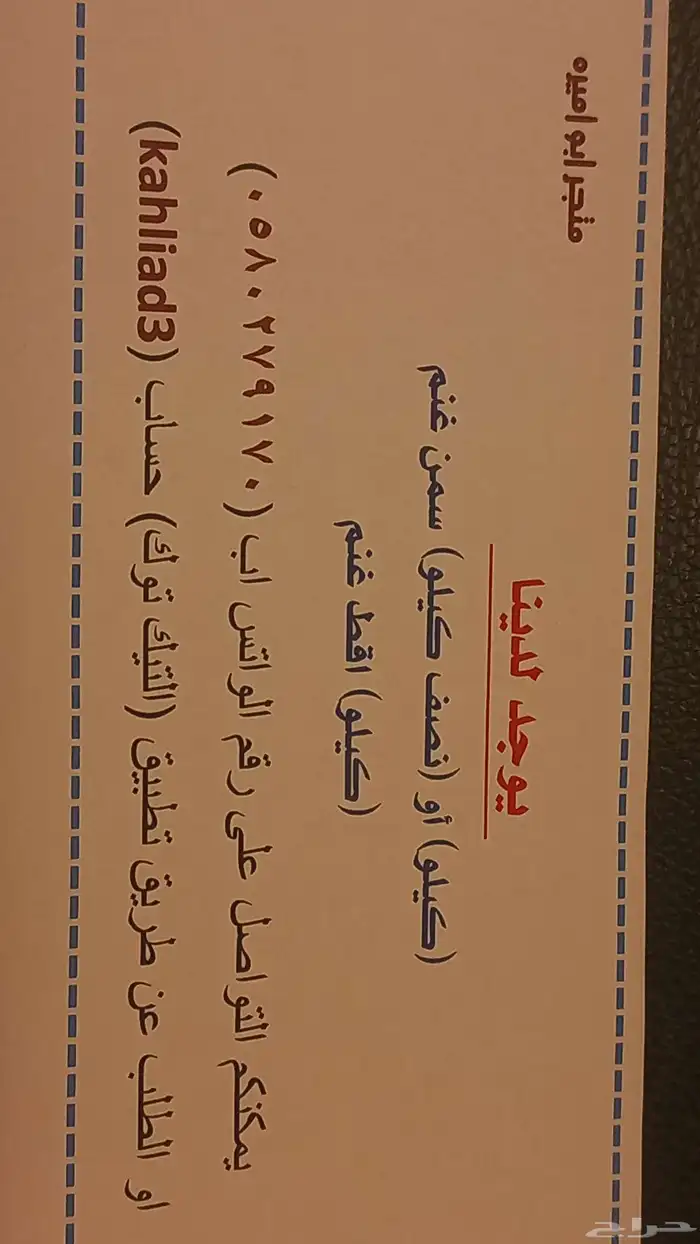 متجر ابو اميره
يوجد لدينا
(كيلو) أو (نصف كيلو) سمن غنم
(كيلو) اقط غنم
يمكنكم التواصل على رقم الواتس اب (٠٥٨٠٢٧٩١٧٠)
او الطلب عن طريق تطبيق (التيك توك) حساب (kahliad3)
حراج